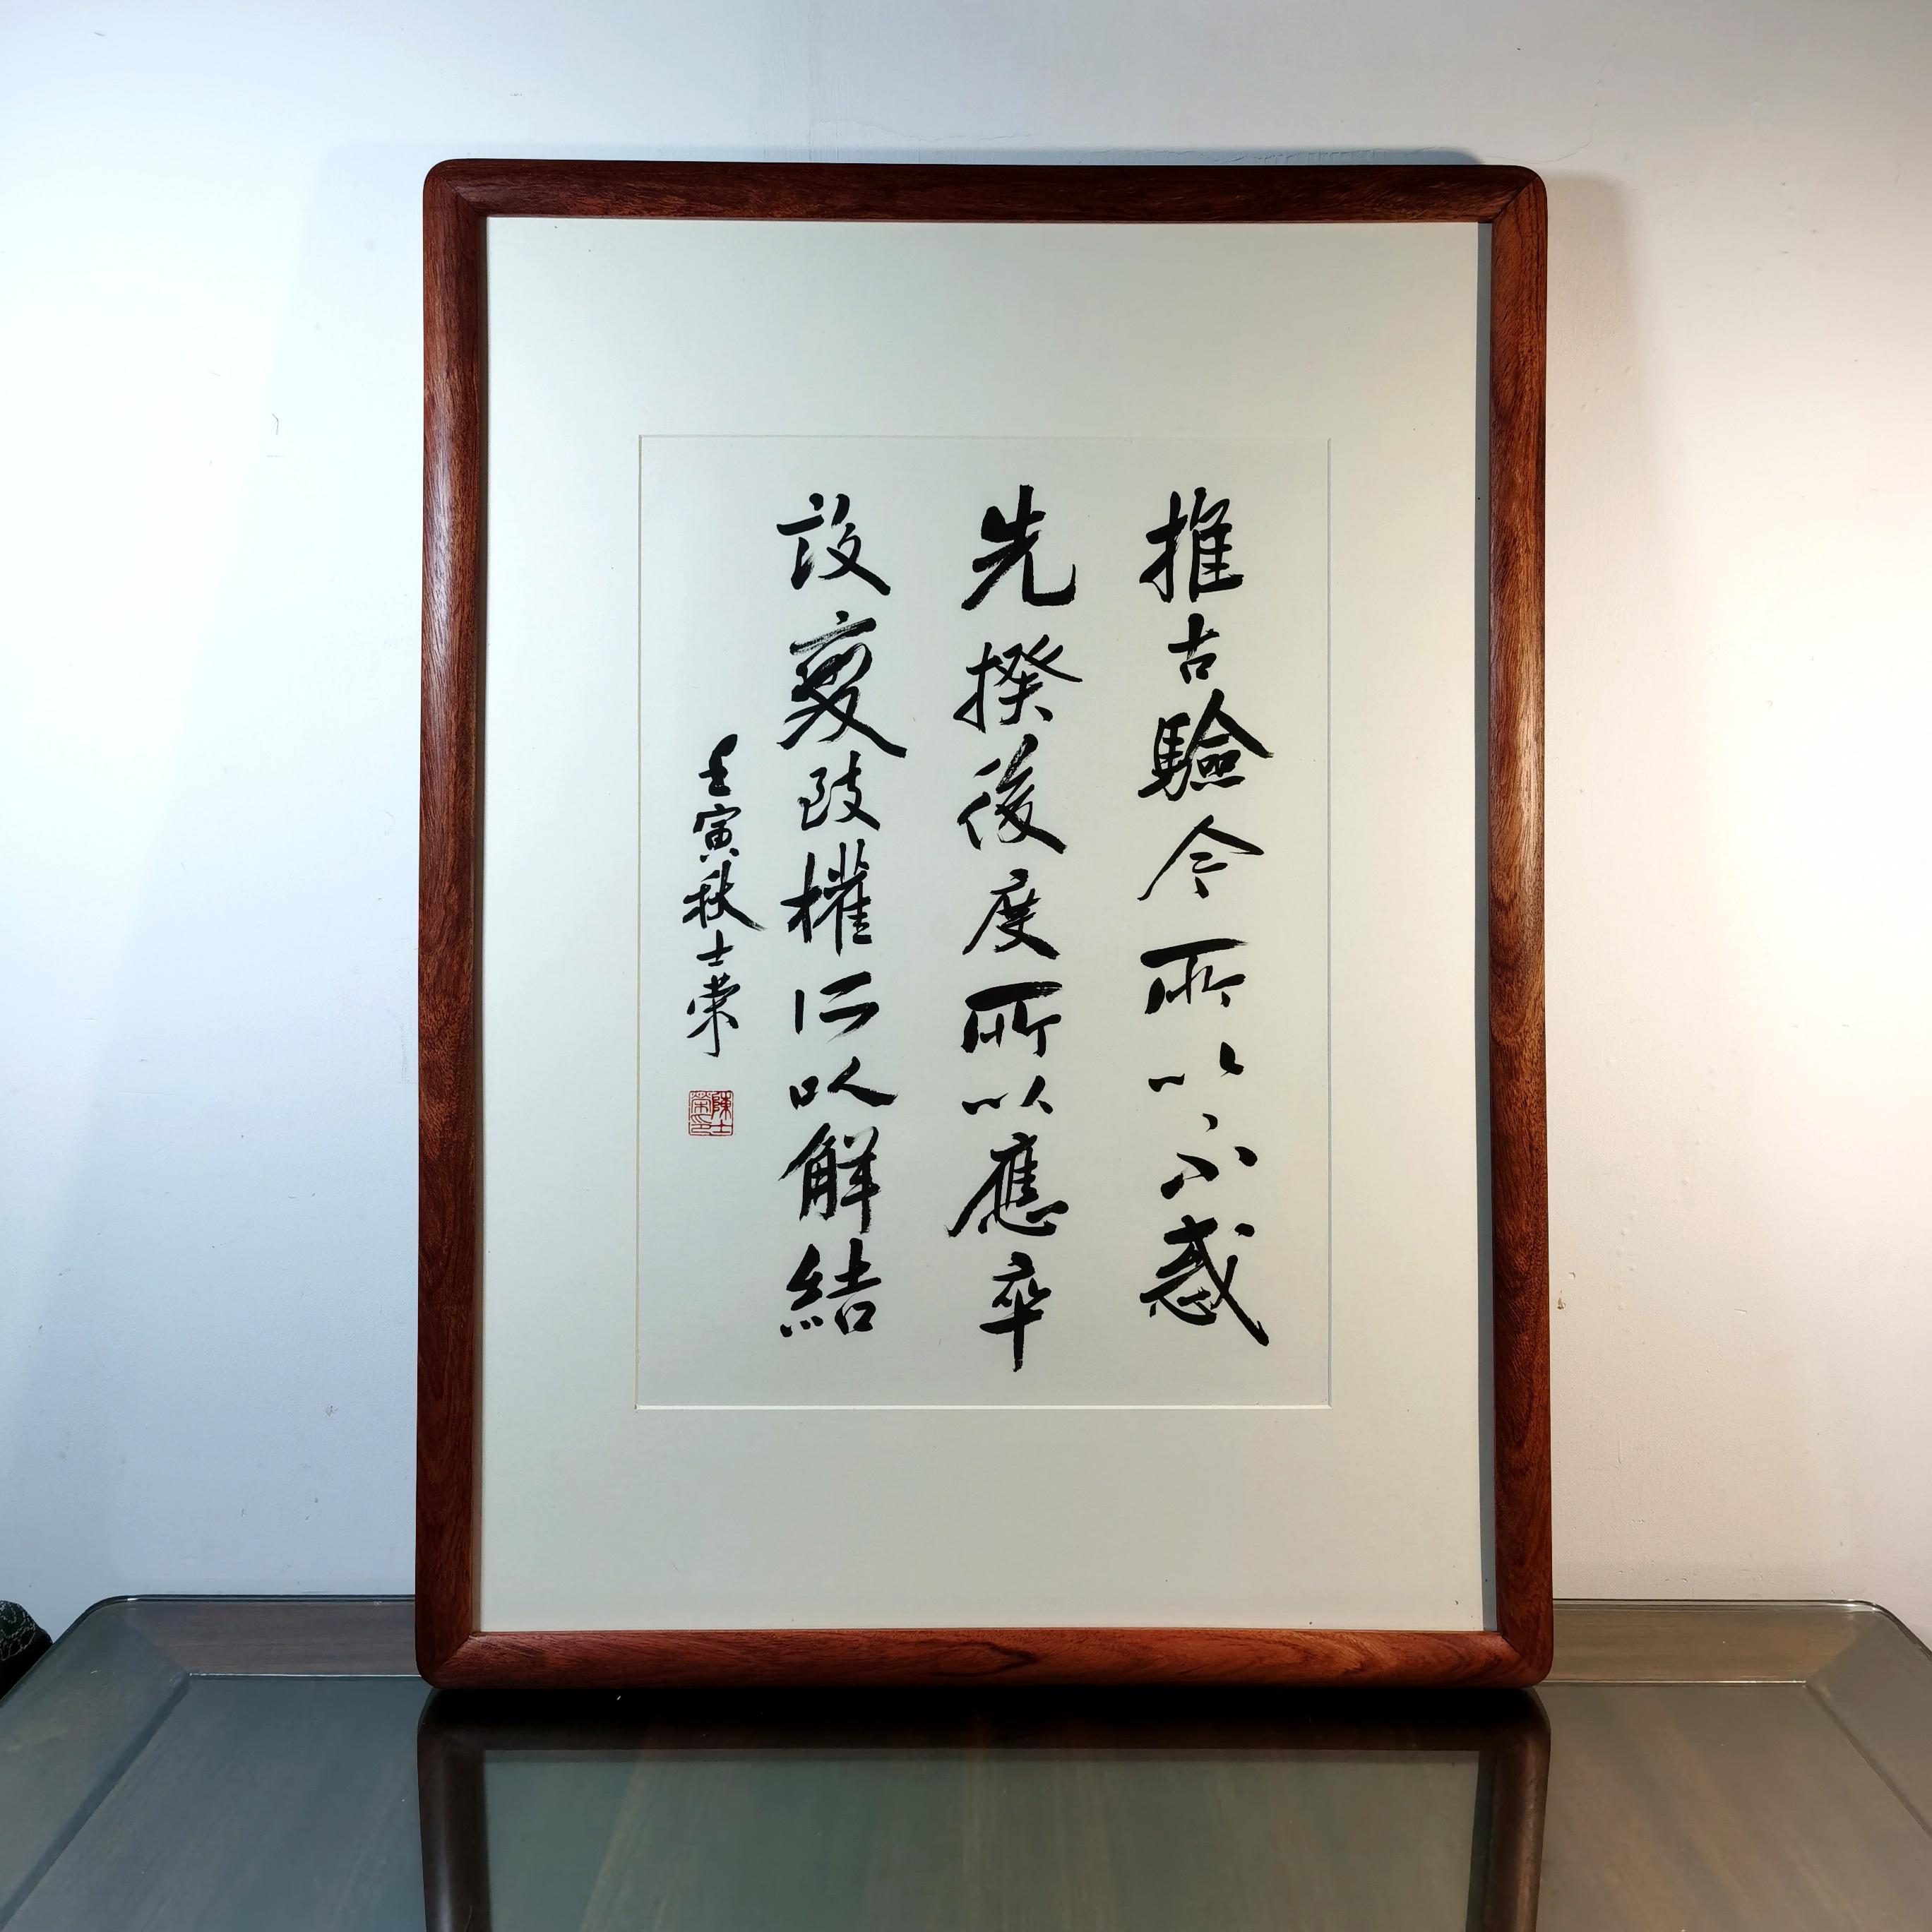 推古驗今所以不惑
先揆後度所以應卒
設變致權所以解結
壬寅秋士榮
陳士榮印